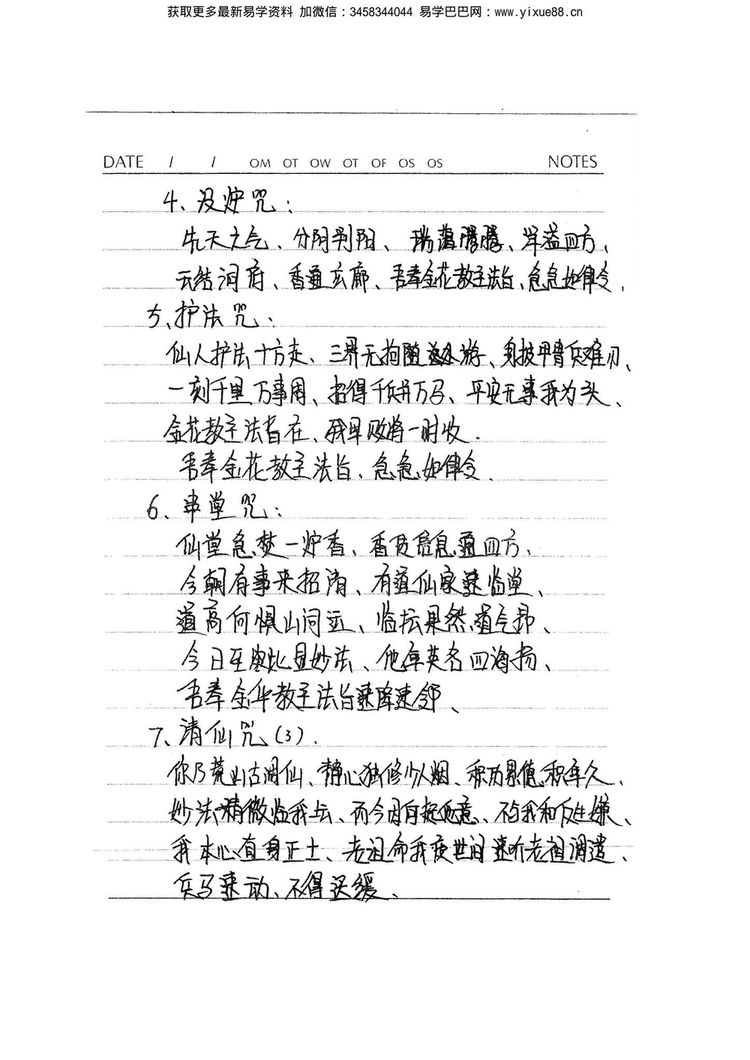 获取更多最新易学资料 加微信：3458344044 易学巴巴网：www.yixue88.cn
DATE / / OM OT OW OT OF OS OS NOTES
4、没炉咒：
先天之气、分阴判阳、瑞蔼腾腾、洋益四方、
云结洞府、香通玄廊、吾奉金花教主法旨、急急如律令．
5、护法咒：
仙人护法十方走、三界无拘随游、身披甲胄兵难刃、
一刻千里万事周、招得千兵万马、平安无事我为头、
金花教主法旨在、残兵败将一时收．
吾奉金花教主法旨、急急如律令．
6、串堂咒：
仙堂急焚一炉香、香质信息通四方、
今朝有事来招请、有道仙家速临堂、
道高何惧山河远、临坛果然道气昂、
今日至此显妙法、他年英名四海扬、
吾奉金华教主法旨速降速邻、
7、请仙咒（3）．
你乃荒山古洞仙、静心独修少人烟、积功累德积年久、
妙法精微临我坛、而今同意、不与我和反生嫌、
我本心直身正士、老祖命我度世间速听老祖调遣、
兵马速动、不得迟缓、